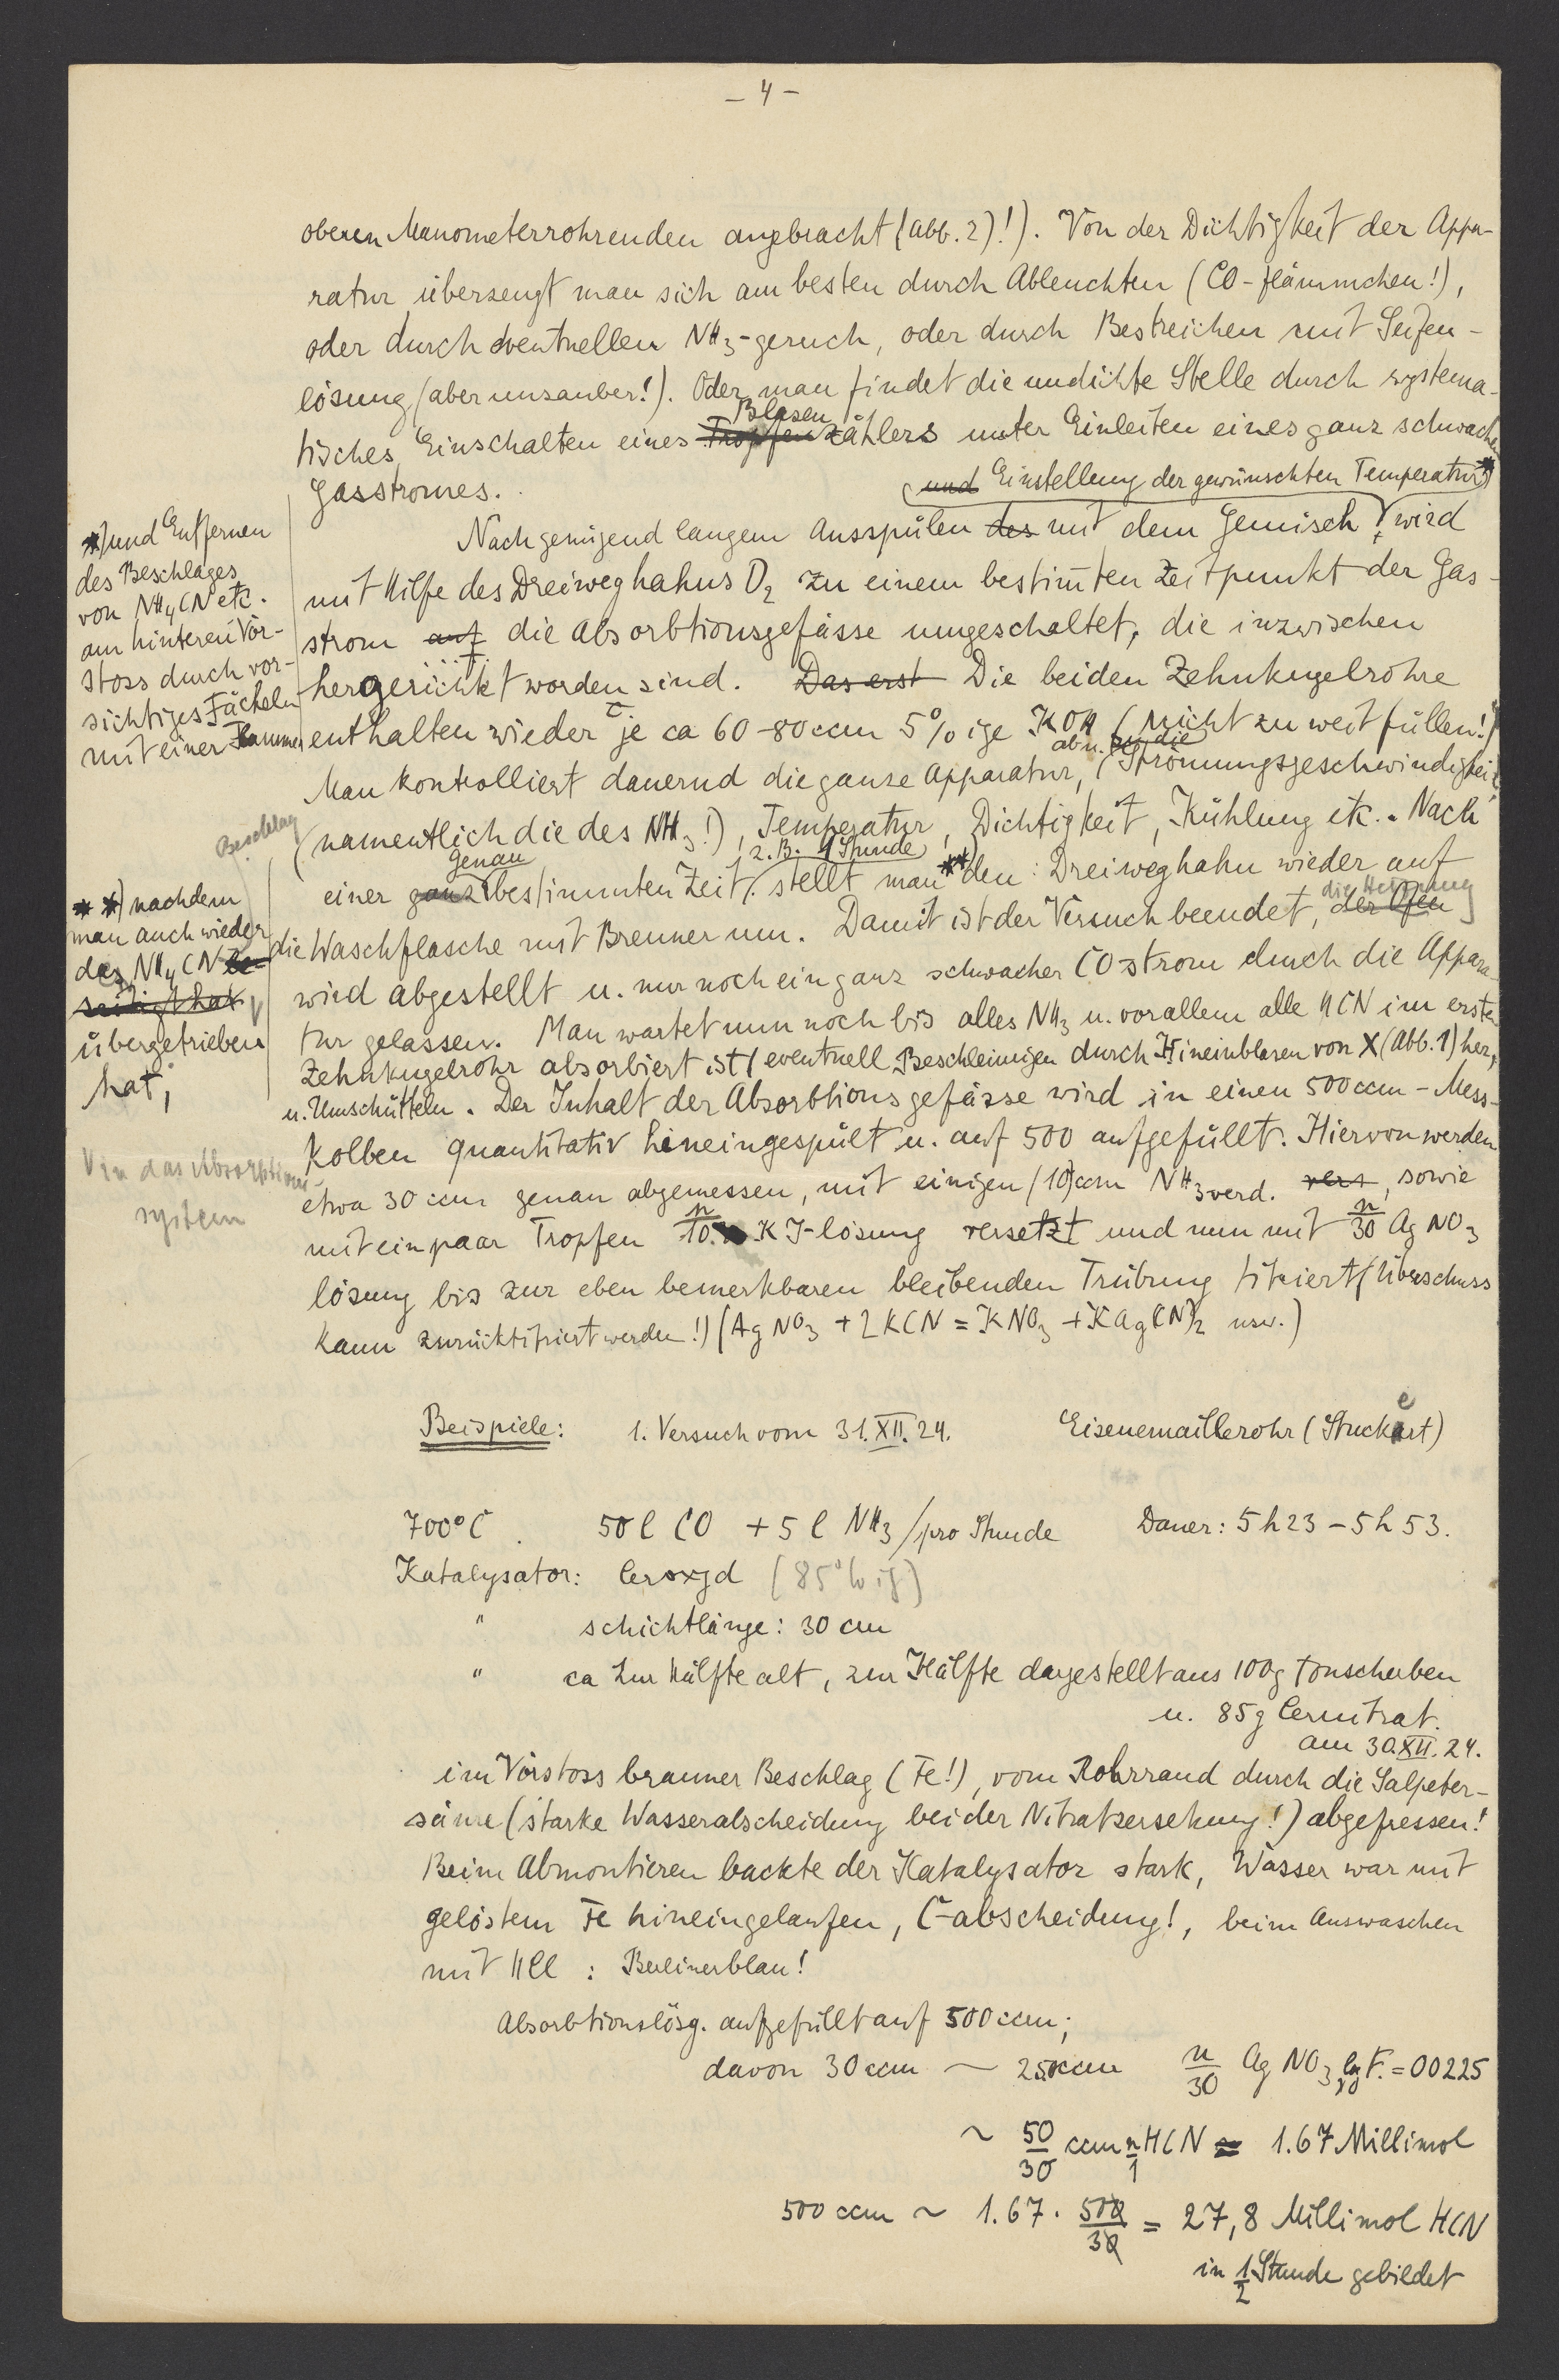 - 4 -
oberen Manometerrohrenden angebracht (Abb. 2)!). Von der Dichtigkeit der Appa-
ratur überzeugt man sich am besten durch Ableuchten (CO-flämmchen!),
oder durch eventuellen NH3-geruch, oder durch Bestreichen mit Seifen-
lösung (aber unsauber!). Oder man findet die undichte Stelle durch systema-
Blasen
tisches Einschalten eines Tropfenzählers unter Einleiten eines ganz schwachen
Gasstromes.
und Einstellung der gewünschten Temperatur *)
Nach genügend langem Ausspülen des mit dem Gemisch, wird
mit Hilfe des Dreiweghahns D2 zu einem bestimmten Zeitpunkt der Gas-
strom auf die Absorbtionsgefässe umgeschaltet, die inzwischen
hergerichtet worden sind. Das erst Die beiden Zehnkugelrohre
enthalten wieder je ca 60-80 ccm 5%ige KOH (nicht zu weit füllen!)
Man kontrolliert dauernd die ganze Apparatur, (Strömungsgeschwindigkeit
(namentlich die des NH3!), Temperatur, Dichtigkeit, Kühlung etc. Nach
genau
z.B. 1 Stunde
einer ganz bestimmten Zeit, stellt man **) den Dreiweghahn wieder auf
die Heizung
die Waschflasche mit Brenner um. Damit ist der Versuch beendet, der Ofen
wird abgestellt u. nur noch ein ganz schwacher CO strom durch die Appara-
tur gelassen. Man wartet nun noch bis alles NH3 u. vor allem alle HCN im ersten
Zehnkugelrohr absorbiert ist (eventuell Beschleunigen durch Hineinblasen von X (Abb. 1) her,
u. Umschütteln. Der Inhalt der Absorbtionsgefässe wird in einen 500 ccm - Mess-
kolben quantitativ hineingespült u. auf 500 aufgefüllt. Hiervon werden
etwa 30 ccm genau abgemessen, mit einigen (10) ccm NH3 verd. vers, sowie
mit ein paar Tropfen n/10 KJ-lösung versetzt und nun mit n/30 AgNO3
lösung bis zur eben bemerkbaren bleibenden Trübung titriert (Überschuss
kann zurücktitriert werden!) (AgNO3 + 2KCN = KNO3 + KAg(CN)2 usw.)
*) und Entfernen
des Beschlages
von NH4CN etc.
am hinteren Vor-
stoss durch vor-
sichtiges Fächeln
mit einer Flamme
Beschlag
**) nachdem
man auch wieder
das NH4CN be-
seitigt hat
übergetrieben
hat,
V in das Absorption-
system
Beispiele: 1. Versuch vom 31. XII. 24. Eisenemaillerohr (Stuckert)
700°C 50 l CO + 5 l NH3 / pro Stunde Dauer: 5 h 23 - 5 h 53.
Katalysator: Ceroxyd (85%ig)
" schichtlänge: 30 cm
" ca zur Hälfte alt, zur Hälfte dargestellt aus 100g Tonscherben
u. 85g Cernitrat.
am 30. XII. 24.
im Vorstoss brauner Beschlag (Fe!), vom Rohrrand durch die Salpeter-
säure (starke Wasserabscheidung bei der Nitratzersetzung!) abgefressen!
Beim Abmontieren backte der Katalysator stark, Wasser war mit
gelöstem Fe hineingelaufen, C-abscheidung!, beim Auswaschen
mit HCl : Berlinerblau!
Absorbtionslösg. aufgefüllt auf 500 ccm;
davon 30 ccm ~ 25 ccm n/30 AgNO3 lg F. = 00225
~ 50/30 ccm n/1 HCN = 1.67 Millimol
500 ccm ~ 1.67 · 500/30 = 27,8 Millimol HCN
in 1/2 Stunde gebildet